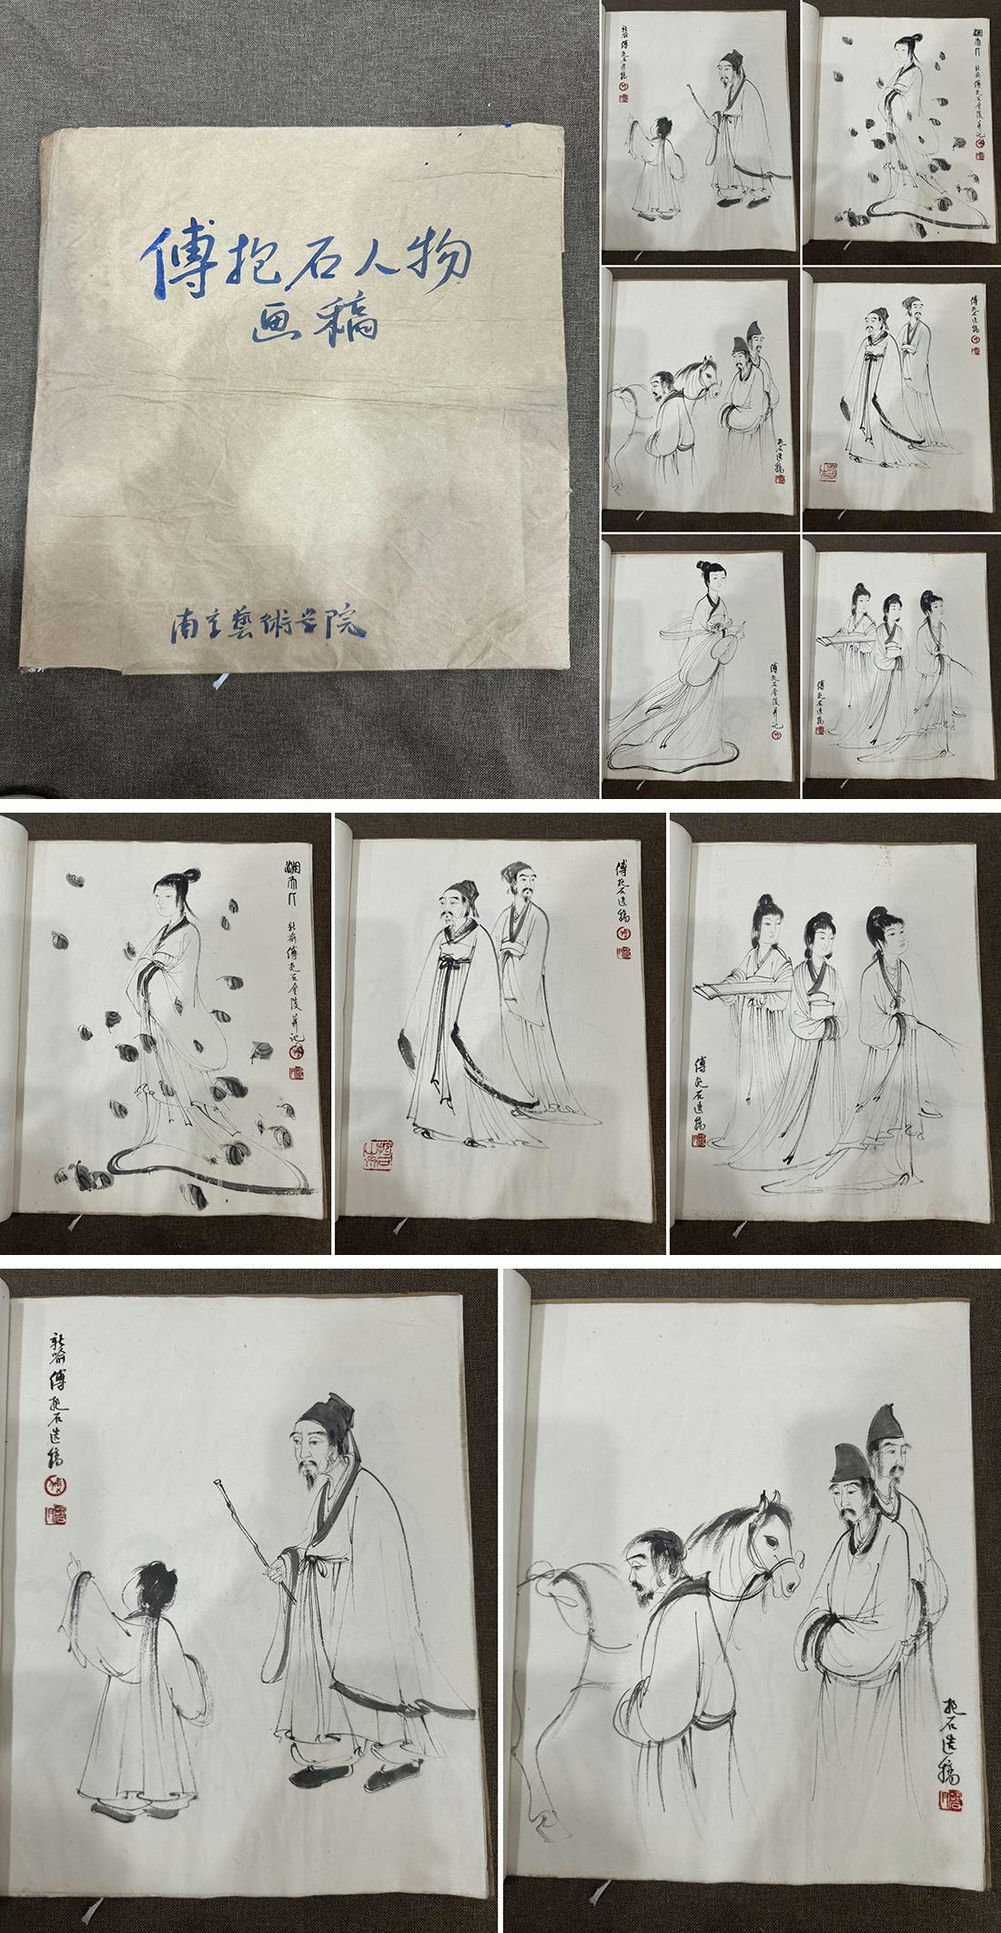 傅抱石人物
画稿
南京藝術学院
新喻傅抱石造稿
湘夫人
新喻傅抱石金陵并记
抱石造稿
傅抱石造稿
傅抱石金陵并记
傅抱石造稿
湘夫人
新喻傅抱石金陵并记
傅抱石造稿
傅抱石造稿
新喻傅抱石造稿
抱石造稿